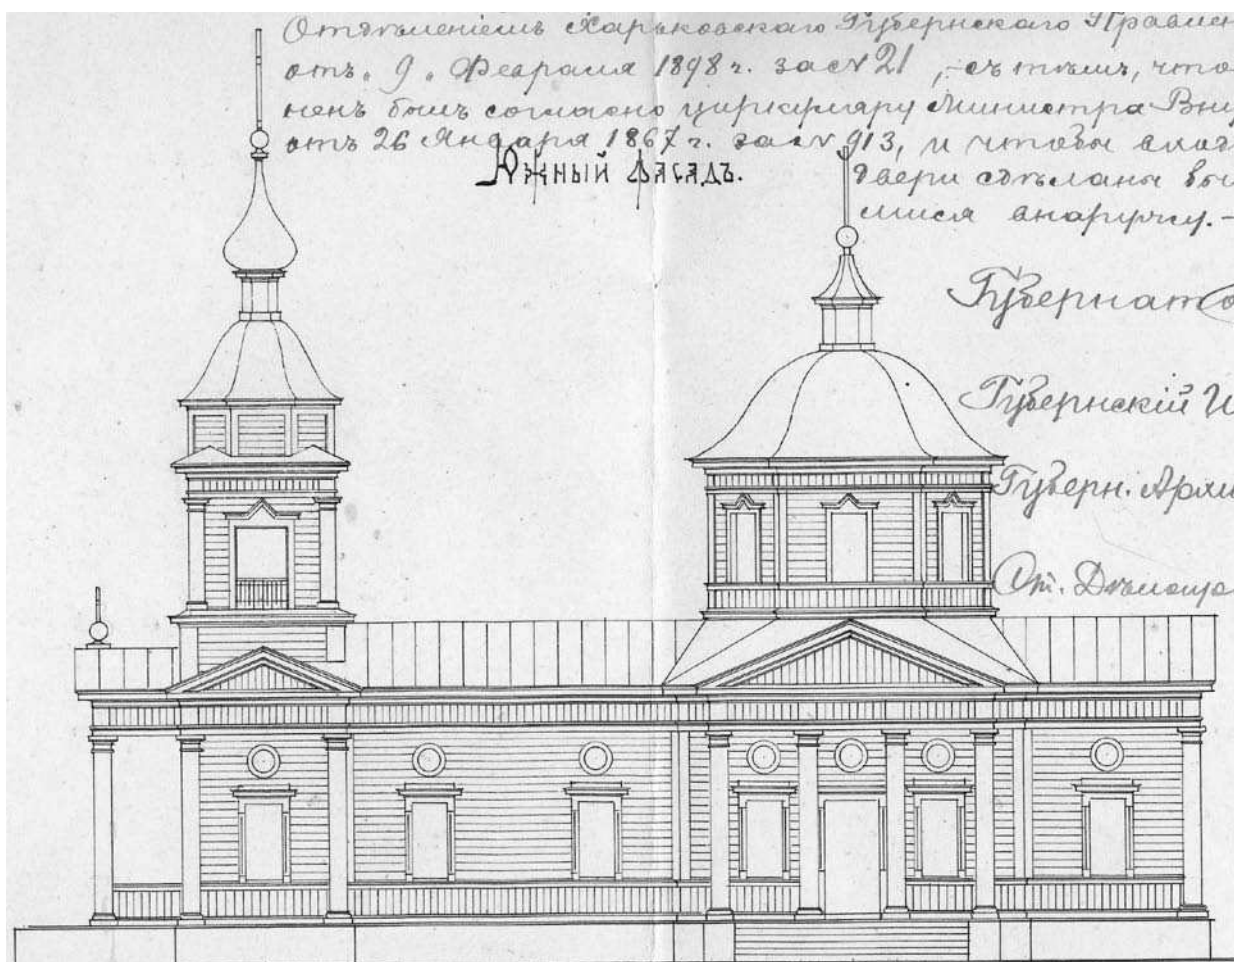 Отдѣленіемъ Харьковскаго Губернскаго Правлен
отъ „9„ Февраля 1898 г. за № 21, съ тѣмъ, что
ненъ былъ согласно циркуляру Министра Вну
отъ 26 Января 1867 г. за № 913, и чтобы
Южный Фасадъ.
двери сдѣланы
мися анаружу.-
Губернато
Губернскій И
Губерн. Архи
От.